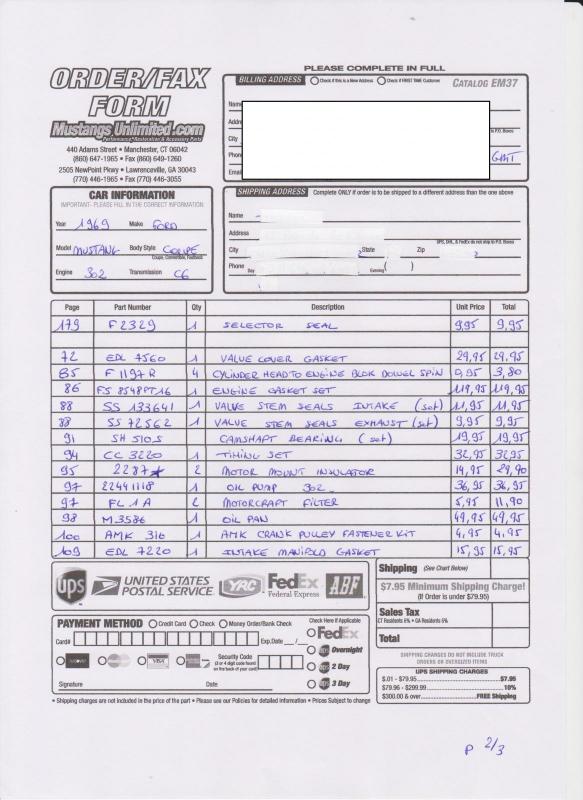 PLEASE COMPLETE IN FULL
ORDER/FAX
FORM
Mustangs Unlimited.com
Performance, Restoration & Accessory Parts
440 Adams Street • Manchester, CT 06042
(860) 647-1965 • Fax (860) 649-1260
2505 NewPoint Pkwy • Lawrenceville, GA 30043
(770) 446-1965 • Fax (770) 446-3055
BILLING ADDRESS Check if this is a New Address Check if FIRST TIME Customer CATALOG EM37
Name
Addre
City to P.O. Boxes
Phone
Email
CAR INFORMATION
IMPORTANT- PLEASE FILL IN THE CORRECT INFORMATION
Year 1969 Make FORD
Model MUSTANG Body Style COUPE
Coupe, Convertible, Fastback
Engine 302 Transmission C6
SHIPPING ADDRESS Complete ONLY if order is to be shipped to a different address than the one above
Name
Address
UPS, DHL, & FedEx do not ship to P.O. Boxes
City State Zip
Phone Day Evening ( )
Page Part Number Qty Description Unit Price Total
179 F2329 1 SELECTOR SEAL 9,95 9,95
72 EDL 7560 1 VALVE COVER GASKET 29,95 29,95
85 F1197R 4 CYLINDER HEAD TO ENGINE BLOK DOWEL SPIN 0,95 3,80
86 FS 8548PT16 1 ENGINE GASKET SET 119,95 119,95
88 SS 133641 1 VALVE STEM SEALS INTAKE (set) 11,95 11,95
88 SS 72562 1 VALVE STEM SEALS EXHAUST (set) 9,95 9,95
91 SH 510S CAMSHAFT BEARING (set) 19,95 19,95
94 CC 3220 1 TIMING SET 32,95 32,95
95 2287* 2 MOTOR MOUNT INSULATOR 14,95 29,90
97 22441118 1 OIL PUMP 302 36,95 36,95
97 FL 1A 2 MOTORCRAFT FILTER 5,95 11,90
98 M3586 1 OIL PAN 49,95 49,95
100 AMK 316 1 AMK CRANK PULLEY FASTENER KIT 4,95 4,95
109 EDL 7220 1 INTAKE MANIFOLD GASKET 15,95 15,95
ups UNITED STATES POSTAL SERVICE YRC FedEx Federal Express ABF
Shipping (See Chart Below)
$7.95 Minimum Shipping Charge!
(If Order is under $79.95)
Sales Tax
CT Residents 6% • GA Residents 6%
Total
PAYMENT METHOD Credit Card Check Money Order/Bank Check
Card# Exp.Date
VISA
Security Code
(3 or 4 digit code found on the back of your card)
Signature Date
Check Here if Applicable
FedEx
Overnight
2 Day
3 Day
SHIPPING CHARGES DO NOT INCLUDE TRUCK
ORDERS OR OVERSIZED ITEMS
UPS SHIPPING CHARGES
$.01 - $79.95 $7.95
$79.96 - $299.99 10%
$300.00 & over FREE Shipping
• Shipping charges are not included in the price of the part • Please see our Policies for detailed information • Prices Subject to Change
P 2/3